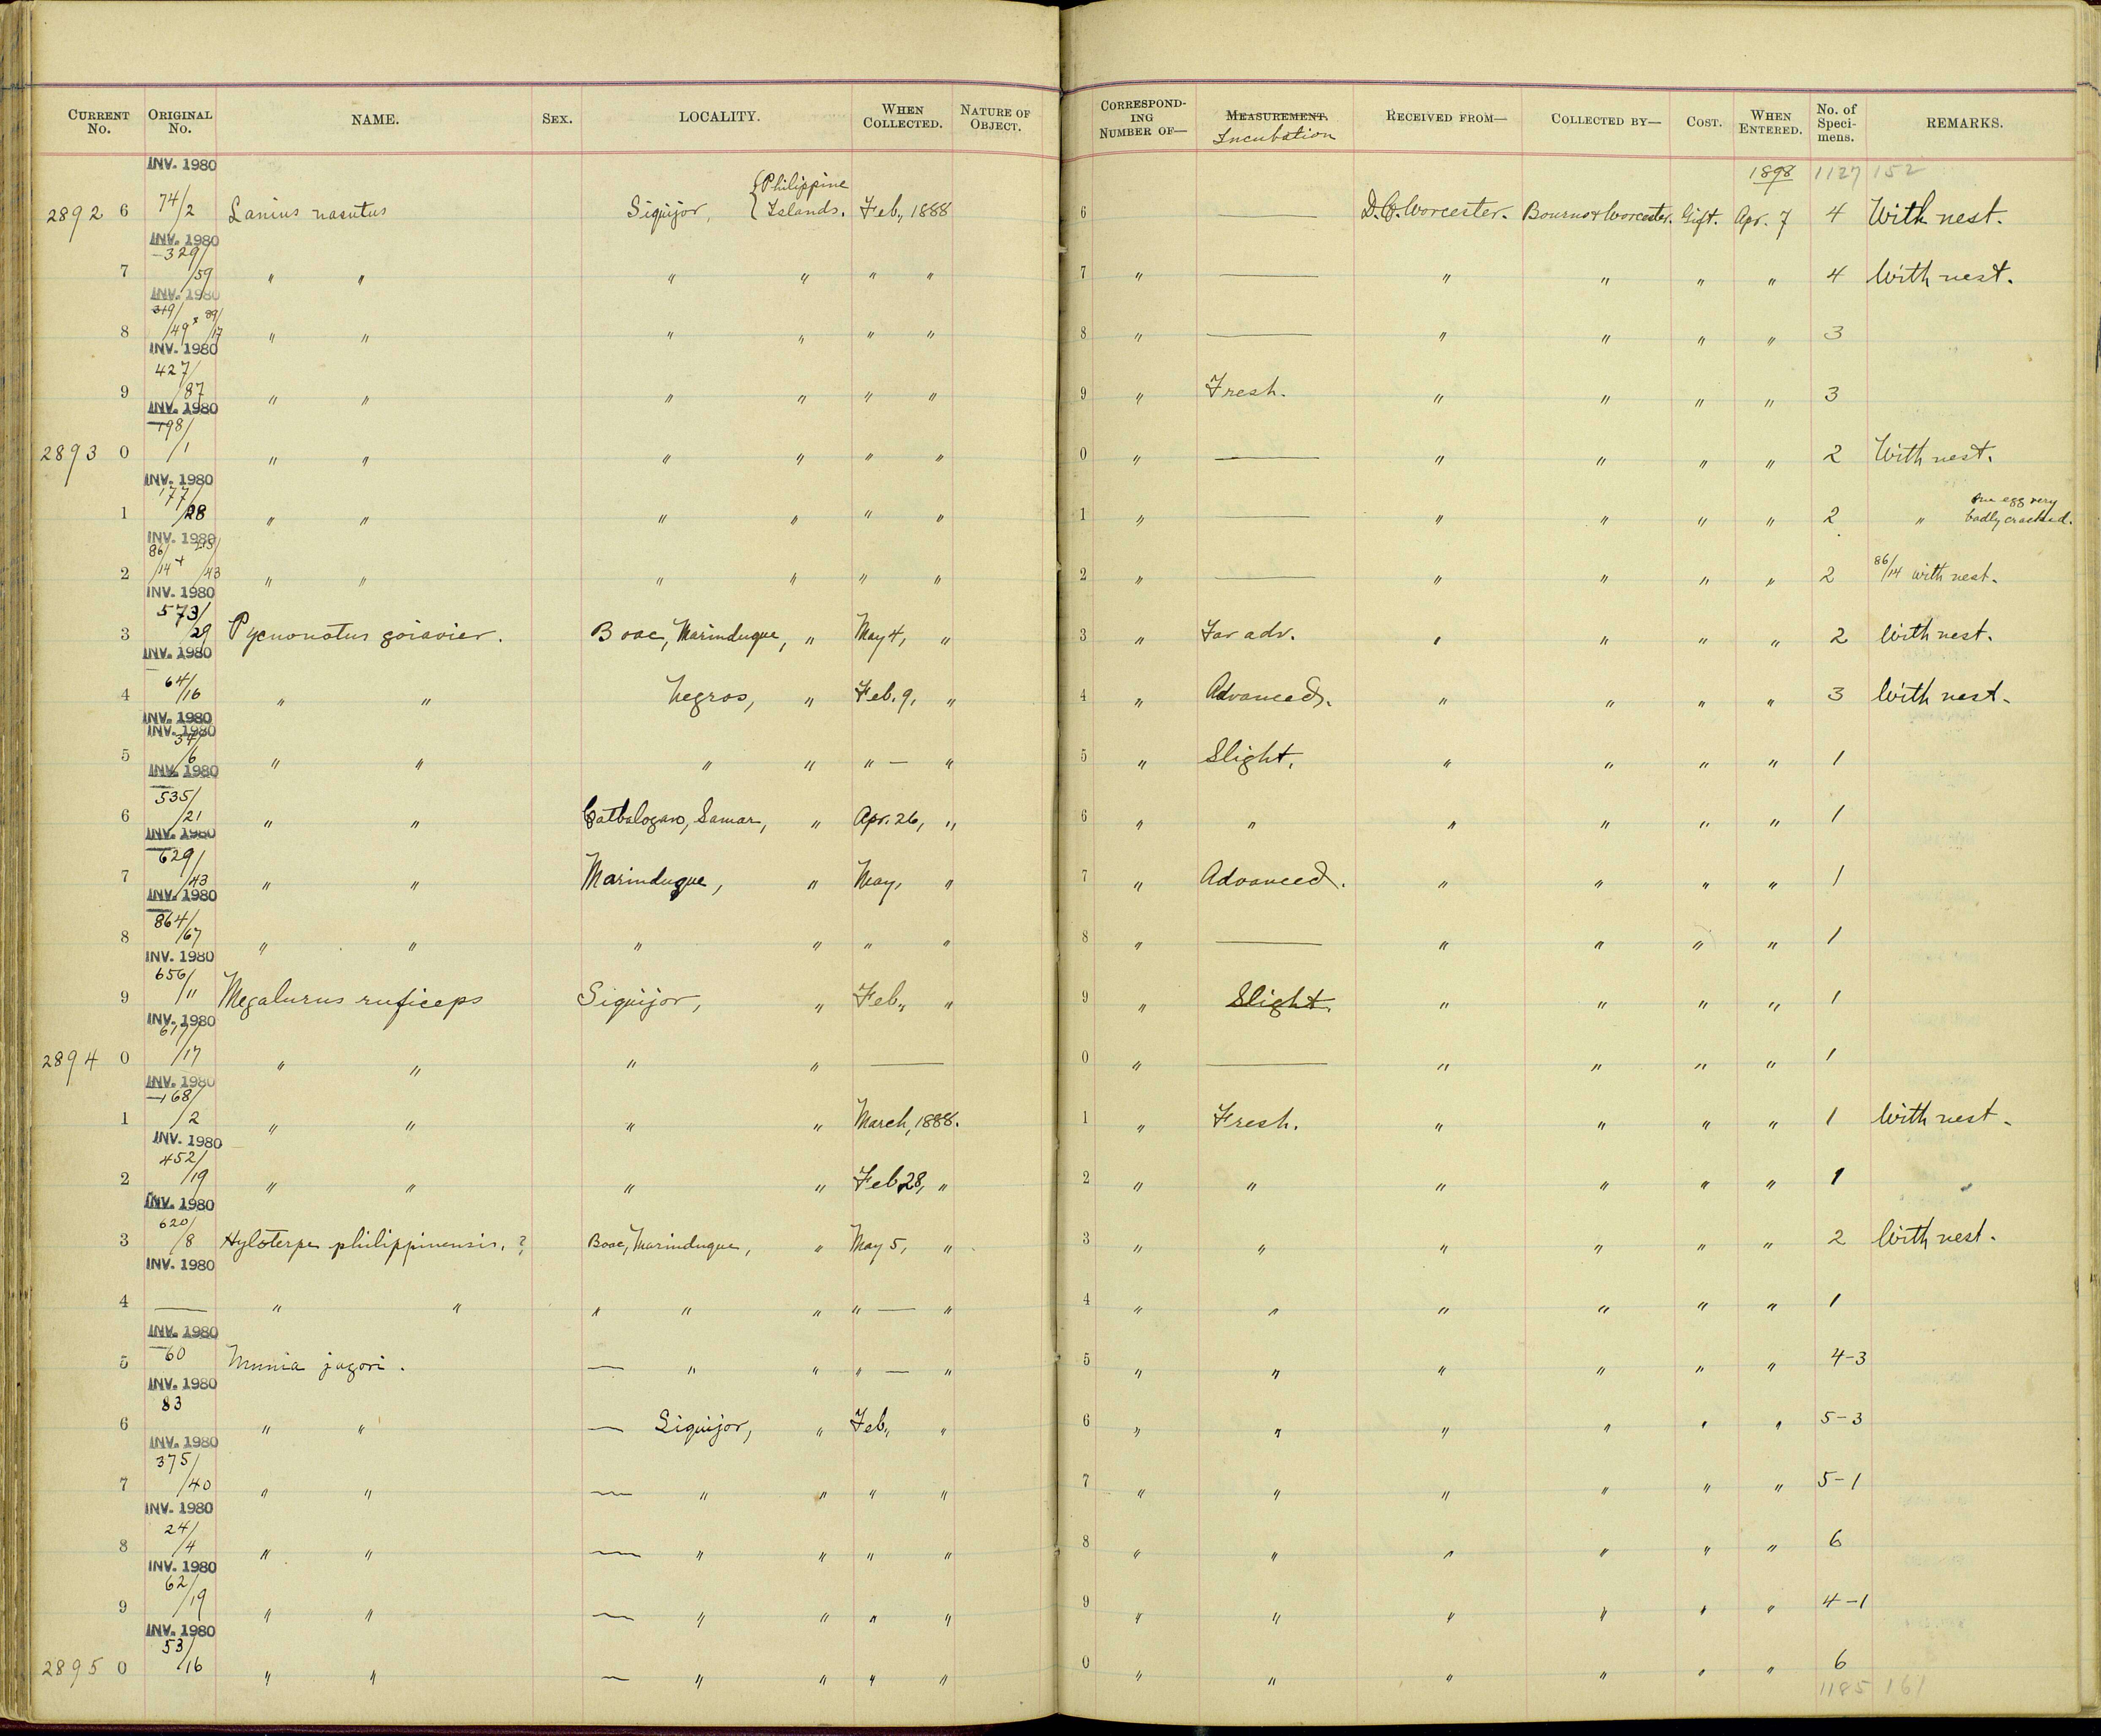 CURRENT No. ORIGINAL No. NAME. SEX. LOCALITY. WHEN COLLECTED. NATURE OF OBJECT. CORRESPOND-ING NUMBER OF— MEASUREMENT. Incubation RECEIVED FROM— COLLECTED BY— COST. WHEN ENTERED. No. of Speci-mens. REMARKS.
INV. 1980 1898 1127 152
28926 74/2 Lanius nasutus Siquijor, {Philippine Islands. Feb., 1888 6 — D.C. Worcester. Bourns & Worcester. Gift. Apr. 7 4 With nest.
INV. 1980
7 329/59 " " " " " " 7 " — " " " " 4 With nest.
INV. 1980
8 319/49 x 89/17 " " " " " " 8 " — " " " " 3
INV. 1980
9 427/87 " " " " " " 9 " Fresh. " " " " 3
INV. 1980
28930 198/1 " " " " " " 0 " — " " " " 2 With nest.
INV. 1980
1 177/28 " " " " " " 1 " — " " " " 2 " One egg very badly cracked.
INV. 1980
2 86/14 + /43 " " " " " " 2 " — " " " " 2 86/14 with nest.
INV. 1980
3 573/29 Pycnonotus goiavier. Boac, Marinduque, " May 4, " 3 " Far adv. " " " " 2 With nest.
INV. 1980
4 64/16 " " Negros, " Feb. 9, " 4 " Advanced. " " " " 3 With nest.
INV. 1980
INV. 1980
5 34/6 " " " " " — " 5 " Slight. " " " " 1
INV. 1980
6 535/21 " " Catbalogan, Samar, " Apr. 26, " 6 " " " " " " 1
INV. 1980
7 629/43 " " Marinduque, " May, " 7 " Advanced. " " " " 1
INV. 1980
8 864/67 " " " " " " 8 " — " " " " 1
INV. 1980
9 656/11 Megalurus ruficeps Siquijor, " Feb., " 9 " Slight. " " " " 1
INV. 1980
28940 617/17 " " " " — 0 " — " " " " 1
INV. 1980
1 168/2 " " " " March, 1888. 1 " Fresh. " " " " 1 With nest.
INV. 1980
2 452/19 " " " " Feb 28, " 2 " " " " " " 1
INV. 1980
3 620/8 Hyloterpe philippinensis. ? Boac, Marinduque, " May 5, " 3 " " " " " " 2 With nest.
INV. 1980
4 — " " " " " " — " 4 " " " " " " 1
INV. 1980
5 60 Munia jagori. — " " " — " 5 " " " " " " 4-3
INV. 1980
6 83 " " — Siquijor, " Feb., " 6 " " " " " " 5-3
INV. 1980
7 375/40 " " — " " " " 7 " " " " " " 5-1
INV. 1980
8 24/4 " " — " " " " 8 " " " " " " 6
INV. 1980
9 62/19 " " — " " " " 9 " " " " " " 4-1
INV. 1980
28950 53/16 " " — " " " " 0 " " " " " " 6
1185 161